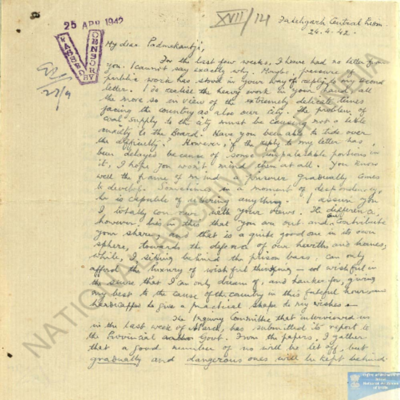 25 APR 1942
XVII/121
Fatehgarh Central Prison
24.4.42.
My dear Padmakantji,
For the last few weeks, I have had no letter from
you. I cannot say exactly why. Maybe, pressure of
public work has stood in your way of reply to my second
letter. I do realise the heavy work in your hand, all
the more so in view of the extremely delicate times
facing the country as also our city. The problem of
supply to the city must be causing not a little
anxiety to the Board. Have you been able to tide over
the difficulty? However, if the reply to my letter has
been delayed because of some unpalatable portions in
it, I hope you won't mind them at all. You know
well the frame of mind a prisoner gradually comes
to develop. Sometimes in a moment of despondency,
he is capable of uttering anything. I assure you
I totally with your views. The difference,
however, lies in this that you are out and contribute
your share, and that is a quite good one in its own
sphere, towards the defence of our hearths and homes,
while, I sitting behind the prison bars, can only
afford the luxury of wishful thinking – not wishful in
the sense that I am only dream of, and hanker for, giving
my best to the cause of the country in this fateful hour
handicapped to give a practical shape to my wishes –
The Inquiry Committee that interviewed us
in the last week of March, has submitted its report to
the Provincial Govt. From the papers, I gather
that a good number of us will be let off, but
gradually and dangerous ones will be kept behind
NATIONAL ARCHIVES OF INDIA